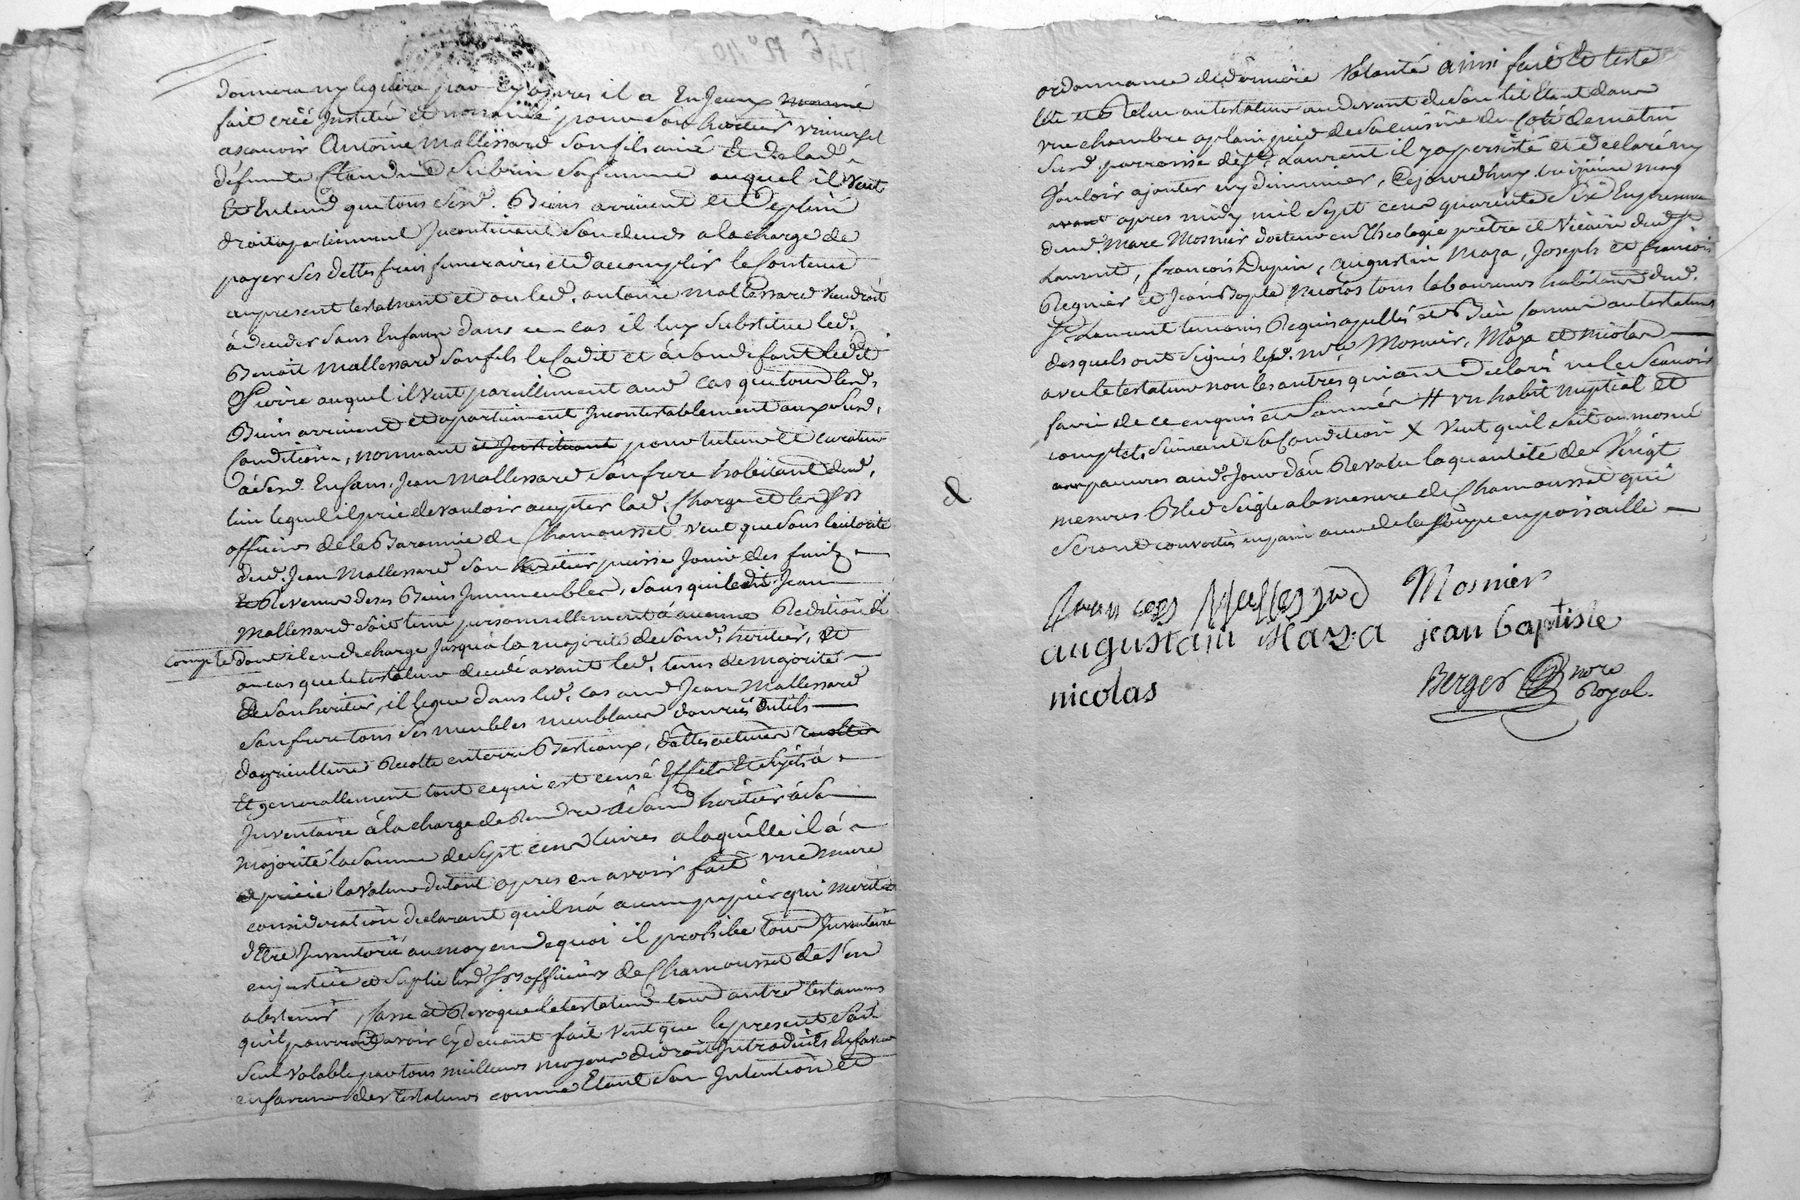 donnera ny leguera par expres il a En Iceux nommé
fait créé Institué et nommé pour son heritier vniversel
ascavoir Antoine Mallessard son fils ainé Et de lad.
défunte Claudine Subrin sa femme auquel il veut
Et Entend que tous sesd. Biens arrivent et de plein
droit apartiennent Incontinent son deces a la charge de
payer ses dettes frais funeraires et d'accomplir le contenu
au present testament et ou led. antoine Mallessard viendroit
à deceder sans Enfans dans ce cas il luy substitue led.
Benoit Mallessard son fils le Cadet et à son defaut ledit
Pierre auquel il veut pareillement aud. cas que tous lesd.
Biens arrivent et apartiennent Incontestablement aux susd.
Conditions, nommant et Instituant pour tuteur et curateur
à sesd. Enfans, Jean Mallessard son frere habitant dud.
lieu lequel il prie de vouloir accepter lad. Charge et les Srs
officiers de la Baronnie de Chamousset veut que sous l'autorité
dud. Jean Mallessard son heritier puisse Jouir des fruits
Et Revenus de ses Biens Immeubles, sans que ledit Jean
Mallessard soit tenu personnellement à aucune Redition de
compte dont il en decharge Jusqu'à la majorité de sond. heritier, et
au cas que le testateur decede avant led. tems de majorité
de son heritier, il legue dans led. cas aud. Jean Mallessard
son frere tous ses meubles meublans danrées outils
d'agriculture Recolte en terre Bestiaux, dettes actives
Et generallement tout ce qui est censé Effets Et sujets à
Inventaire à la charge de Rendre à sond. heritier à sa
majorité la somme de sept cens livres a laquelle il à
aprecié la valeur du tout apres en avoir fait vne mure
consideration declarant qu'il n'a aucun papier qui merite
d'Etre Inventorié au moyen de quoi il prohibe tout Inventaire
en justice et suplie lesd. Srs officiers de Chamousset de s'en
abstenir, Casse et Revoque le testateur tous autres testamens
qu'il pourroit avoir cy devant fait veut que le present soit
seul valable par tous meilleurs moyens de droit Introduits En faveur
en faveur des testateurs comme Etant son Intention et
ordonnance de derniere Volonté ainsi fait Et testé
leu et Relu au testateur au devant de son lit Etant dans
vne chambre a plain pied de sa cuisine du Coté de matin
susd. parroisse de St. Laurent il y a persisté et declaré ny
Vouloir ajouter ny diminuer, Cejourdhuy troisieme may
avant apres midy mil sept cens quarente Six En presence
de Mre Marc Mosnier docteur en theologie prêtre et Vicaire dud. St
Laurent, françois Dupin, augustin Maza, Joseph et françois
Regnier et Jean Bapte Nicolas tous laboureurs habitans dud.
St Laurent temoins Requis apellés et Bien connus au testateur
desquels ont signés led. Mre Mosnier, Maza et Nicolas
avec le testateur non les autres qui ont declaré ne le scavoir
faire de ce enquis et sommés # vn habit nuptial et
complet suivant sa Condition X Veut qu'il soit aumosné
aux pauvres aud. Jour d'an Revolu la quantité de Vingt
mesures Bled Seigle a la mesure de Chamousset qui
seront convertis en pain avec de la soupe en poissaille
&
françois Mallessard Mosnier
augustain Maza jean baptiste
nicolas
Berger nore
Royal.